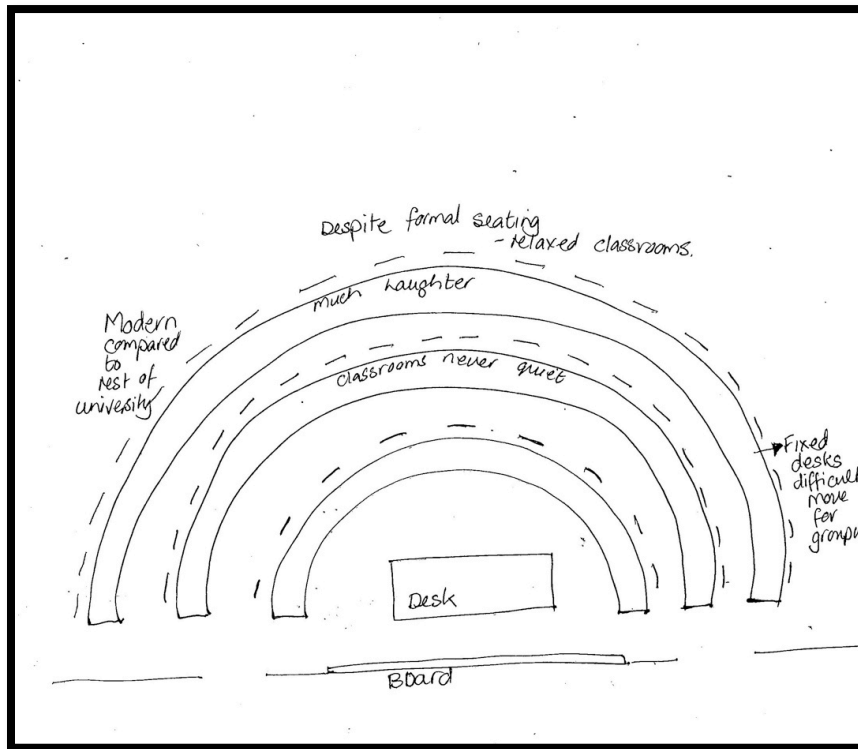 Despite formal seating
- relaxed classrooms.
much laughter
Modern
compared
to
rest of
university
classrooms never quiet
Fixed
desks
difficul
move
for
group
Desk
Board